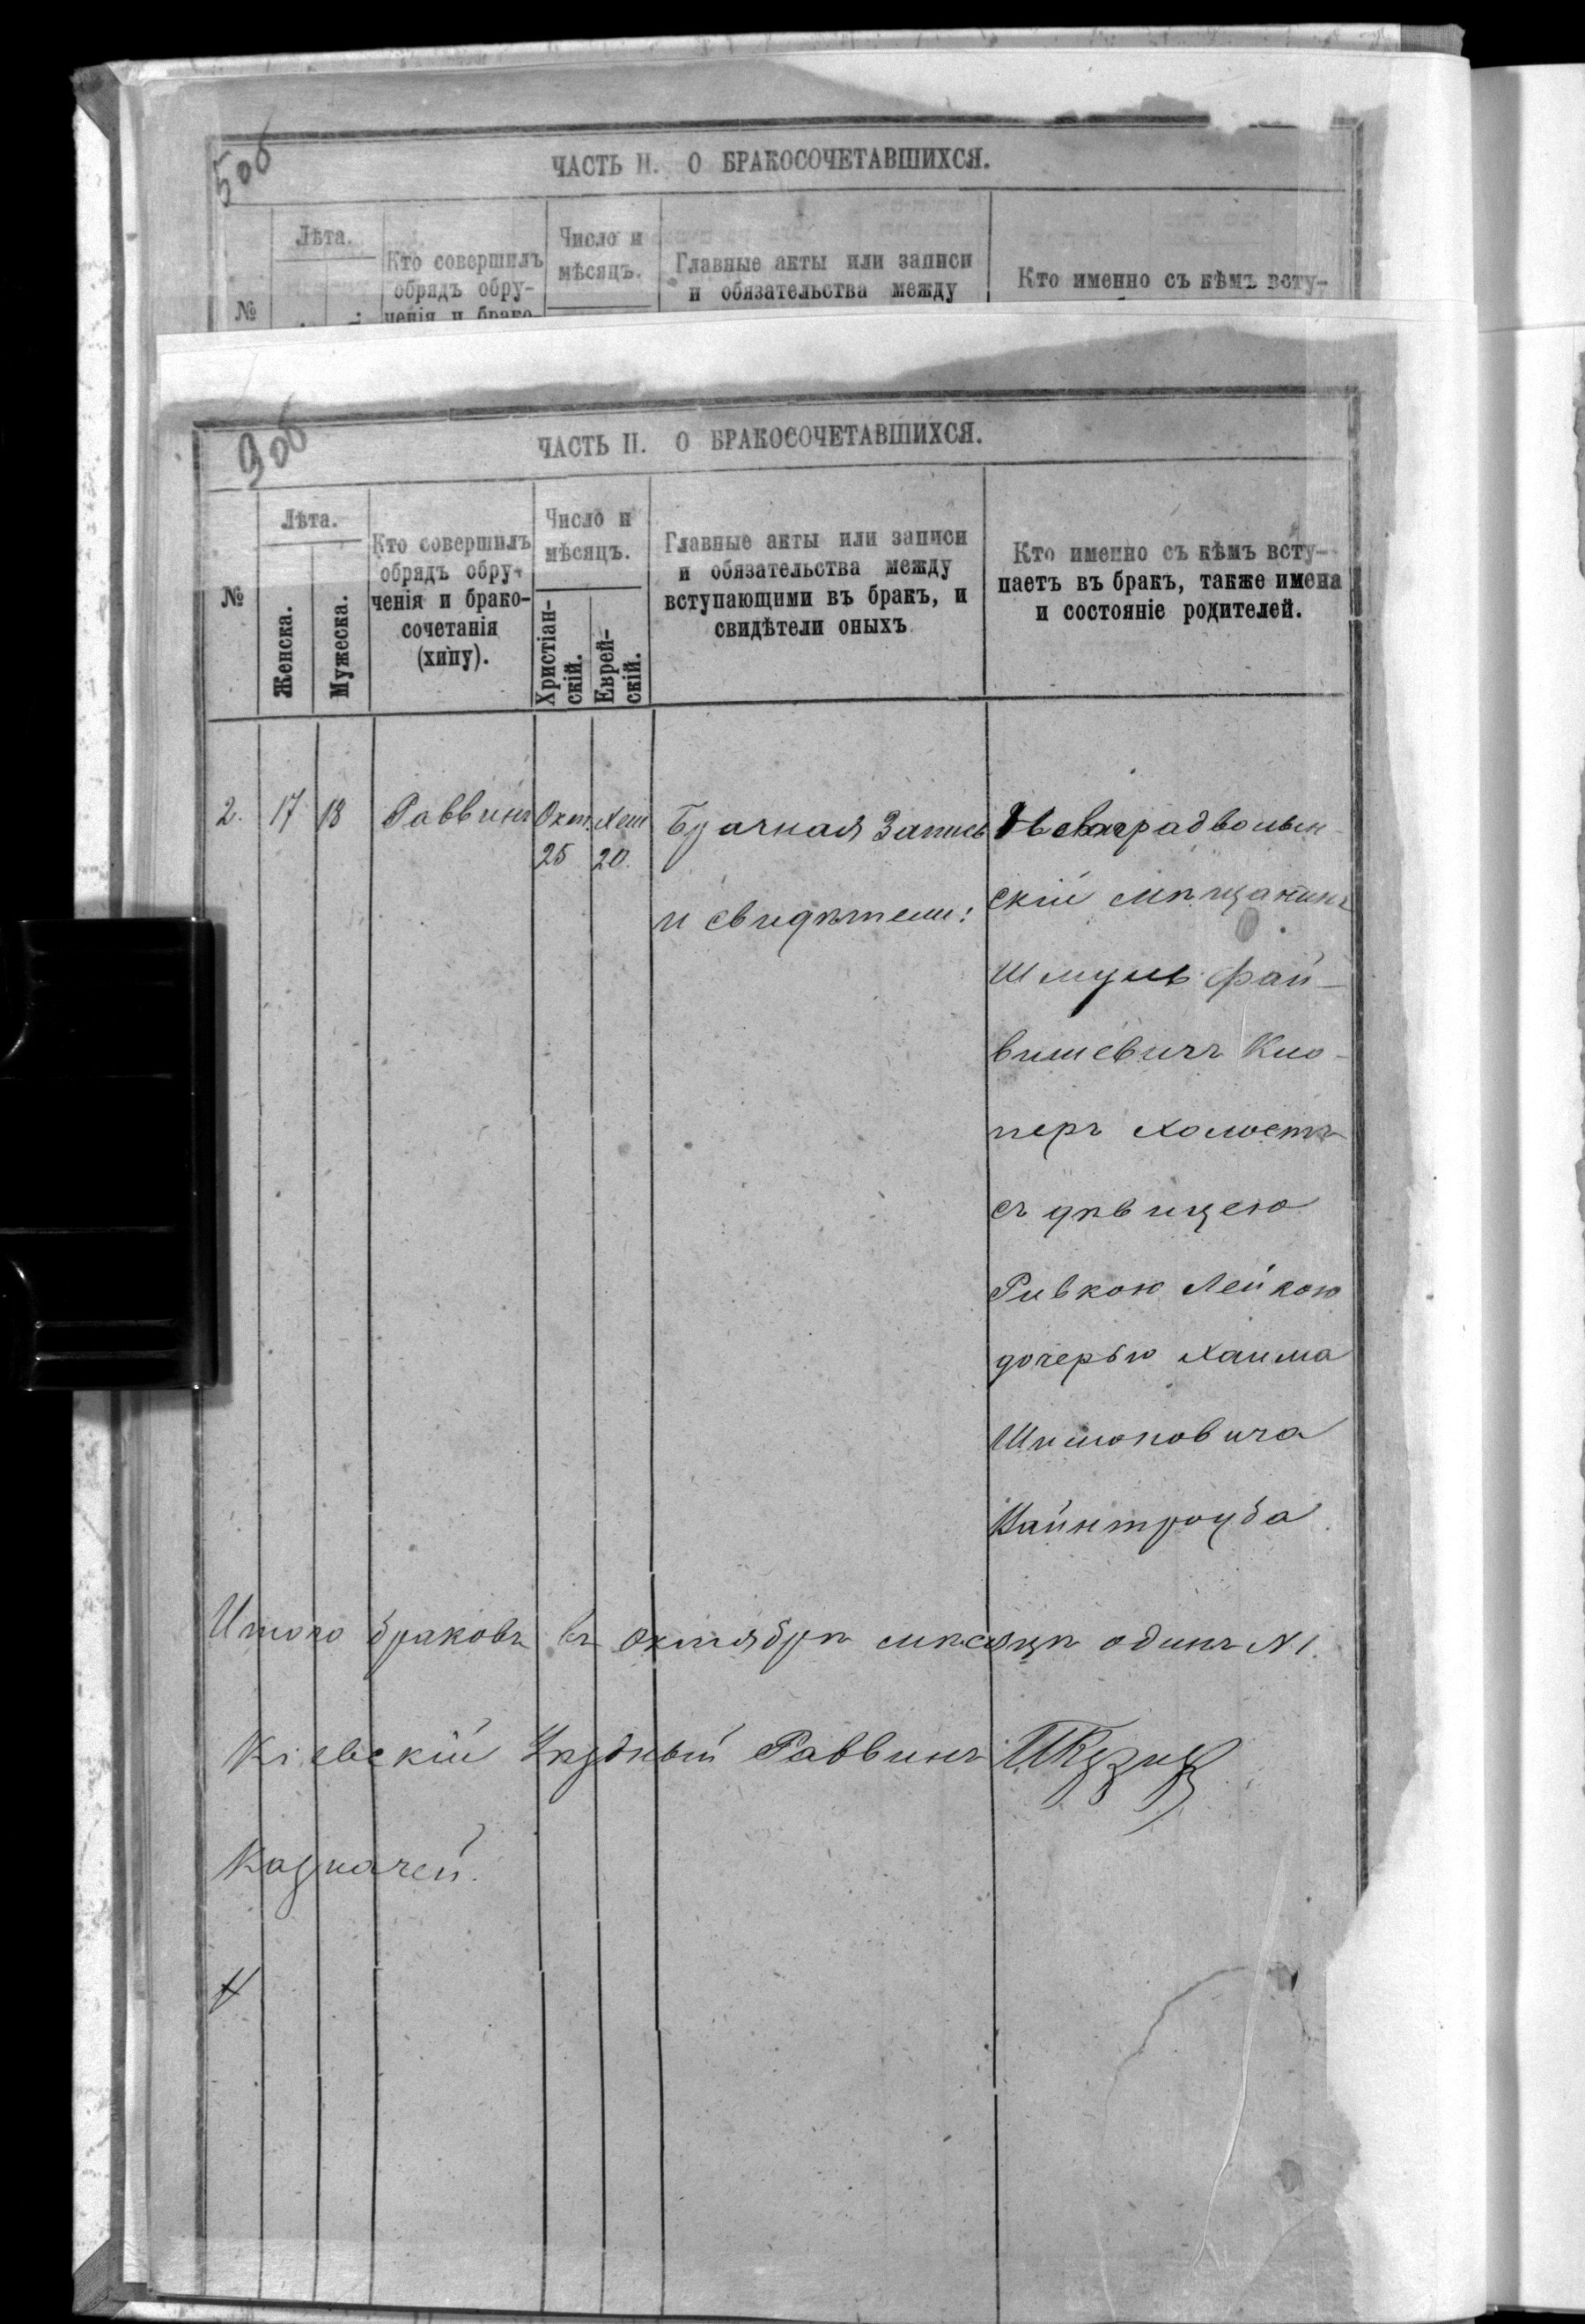 5об
ЧАСТЬ II. О БРАКОСОЧЕТАВШИХСЯ.
№
Лѣта.
Кто совершилъ
обрядъ обру-
ченія и брако-
Число и
мѣсяцъ.
Главные акты или записи
и обязательства между
Кто именно съ кѣмъ всту-
9об
ЧАСТЬ II. О БРАКОСОЧЕТАВШИХСЯ.
№
Лѣта.
Женска.
Мужеска.
Кто совершилъ
обрядъ обру-
ченія и брако-
сочетанія
(хипу).
Число и
мѣсяцъ.
Христіан-
скій.
Еврей-
скій.
Главные акты или записи
и обязательства между
вступающими въ бракъ, и
свидѣтели оныхъ.
Кто именно съ кѣмъ всту-
паетъ въ бракъ, также имена
и состояніе родителей.
2.
17
18
Раввинъ
Окт.
25
Хеш
20.
Брачная Запись
и свидѣтели:
Новоградволын-
скій мѣщанинъ
Шмуль Фай-
вишевичъ Кно-
перъ холостъ
съ дѣвицею
Ривкою Лейкою
дочерью Хаима
Шимоновича
Вайнтроуба
Итого браковъ въ Октябрѣ мѣсяцѣ одинъ N 1.
Кіевскій Уѣздный Раввинъ
Казначей.